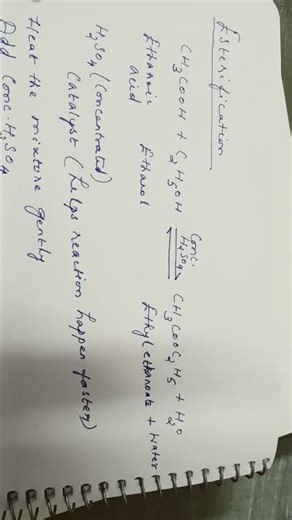 Esterification
CH3COOH + C2H5OH ⇌ CH3COOC2H5 + H2O
Conc.
H2SO4
Ethanoic Ethanol Ethylethanoate + water
acid
H2SO4 (Concentrated)
Catalyst (Helps reaction happen faster)
Heat the mixture gently
Add Conc. H2SO4